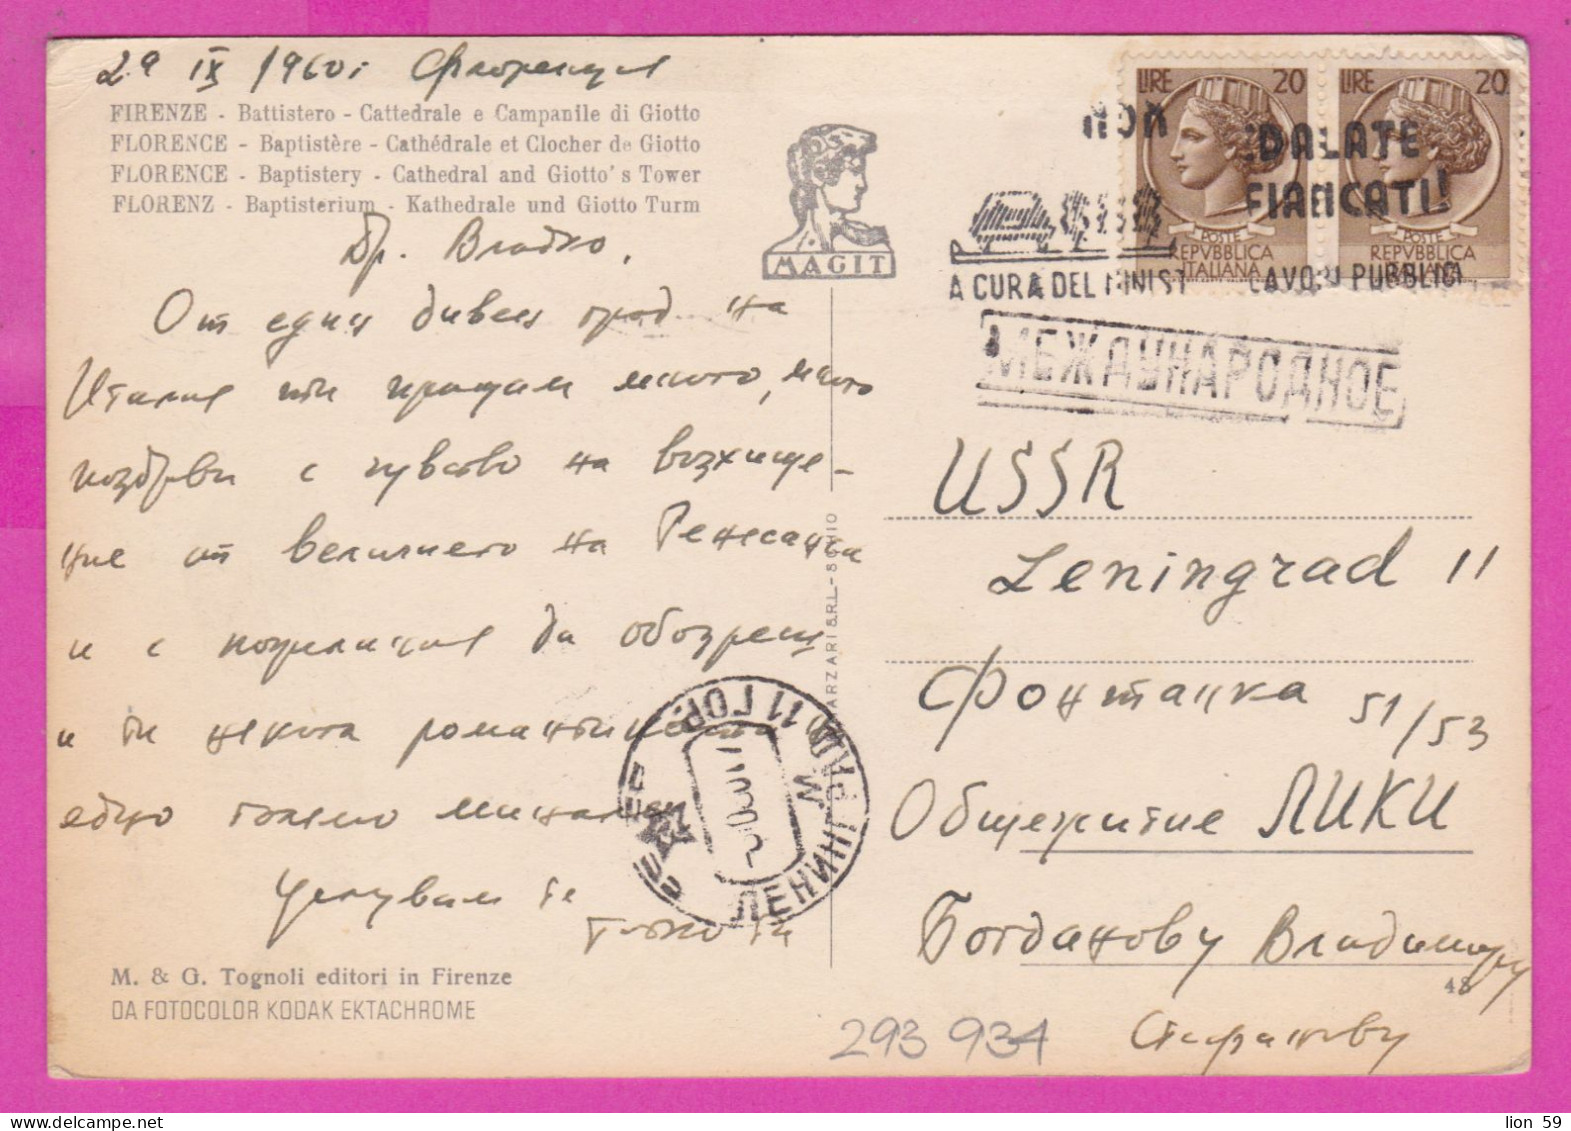 29 IX 1960г Флоренция
FIRENZE - Battistero - Cattedrale e Campanile di Giotto
FLORENCE - Baptistère - Cathédrale et Clocher de Giotto
FLORENCE - Baptistery - Cathedral and Giotto's Tower
FLORENZ - Baptisterium - Kathedrale und Giotto Turm
Др. Владко,
От един дивен град на
Италия ти пращам много, много
поздрави с чувство на възхище-
ние от величието на Ренесанса
и с пожелания да обозреш
и ти някога романтиката
едно голямо минало
Целувам те
M. & G. Tognoli editori in Firenze
DA FOTOCOLOR KODAK EKTACHROME
MAGIT
ARZARI S.R.L. - SCHIO
LIRE 20
POSTE
REPVBBLICA
ITALIANA
LIRE 20
POSTE
REPVBBLICA
NON
FIDATE
A CURA DEL MINIST LAVORI PUBBLICI
МЕЖДУНАРОДНОЕ
USSR
Leningrad 11
Фонтанка 51/53
Общежитие ЛИКИ
Богданову Владимиру
Стефанову
48
ЛЕНИНГРАД 11 ГОР.
293 934
lion 59